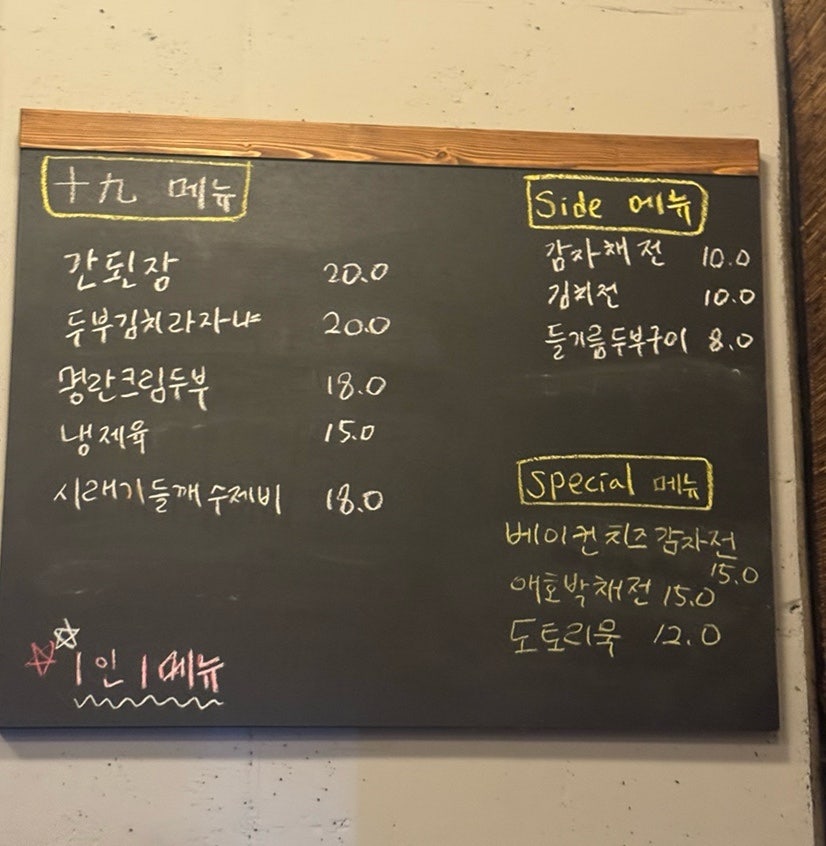 十九 메뉴
간된장 20.0
두부김치라자냐 20.0
명란크림두부 18.0
냉제육 15.0
시래기들깨수제비 18.0
☆☆ 1인 1메뉴
Side 메뉴
감자채전 10.0
김치전 10.0
들기름두부구이 8.0
Special 메뉴
베이컨치즈감자전
15.0
애호박채전 15.0
도토리묵 12.0